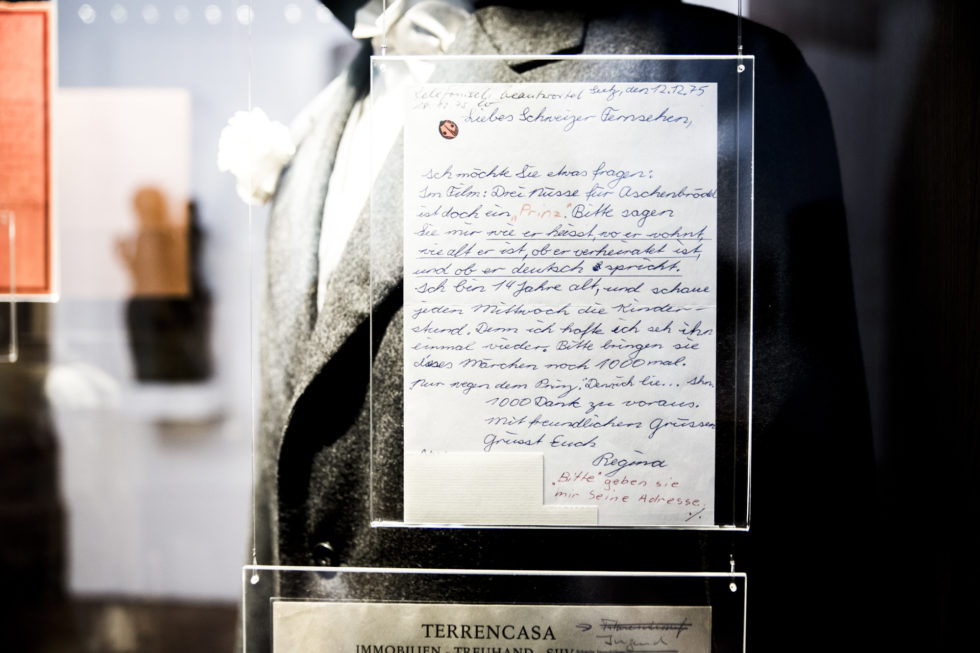 Telefonisch beantwortet Sutz, den 12.12.75
18.12.75
Liebes Schweizer Fernsehen,
Ich möchte Sie etwas fragen:
Im Film: Drei Nüsse für Aschenbrödel
ist doch ein „Prinz". Bitte sagen
Sie mir wie er heisst, wo er wohnt,
wie alt er ist, ob er verheiratet ist,
und ob er deutsch spricht.
Ich bin 14 Jahre alt, und schaue
jeden Mittwoch die Kinder-
stund. Denn ich hoffe ich seh ihn
einmal wieder. Bitte bringen sie
dieses Märchen noch 1000 mal.
Nur wegen dem Prinz. Denn ich lie... ihn.
1000 Dank zu voraus.
Mit freundlichen Grüssen
Grüsst Euch
Regina
„Bitte" geben sie
mir seine Adresse.
./.
TERRENCASA
Jugend
IMMOBILIEN - TREUHAND -